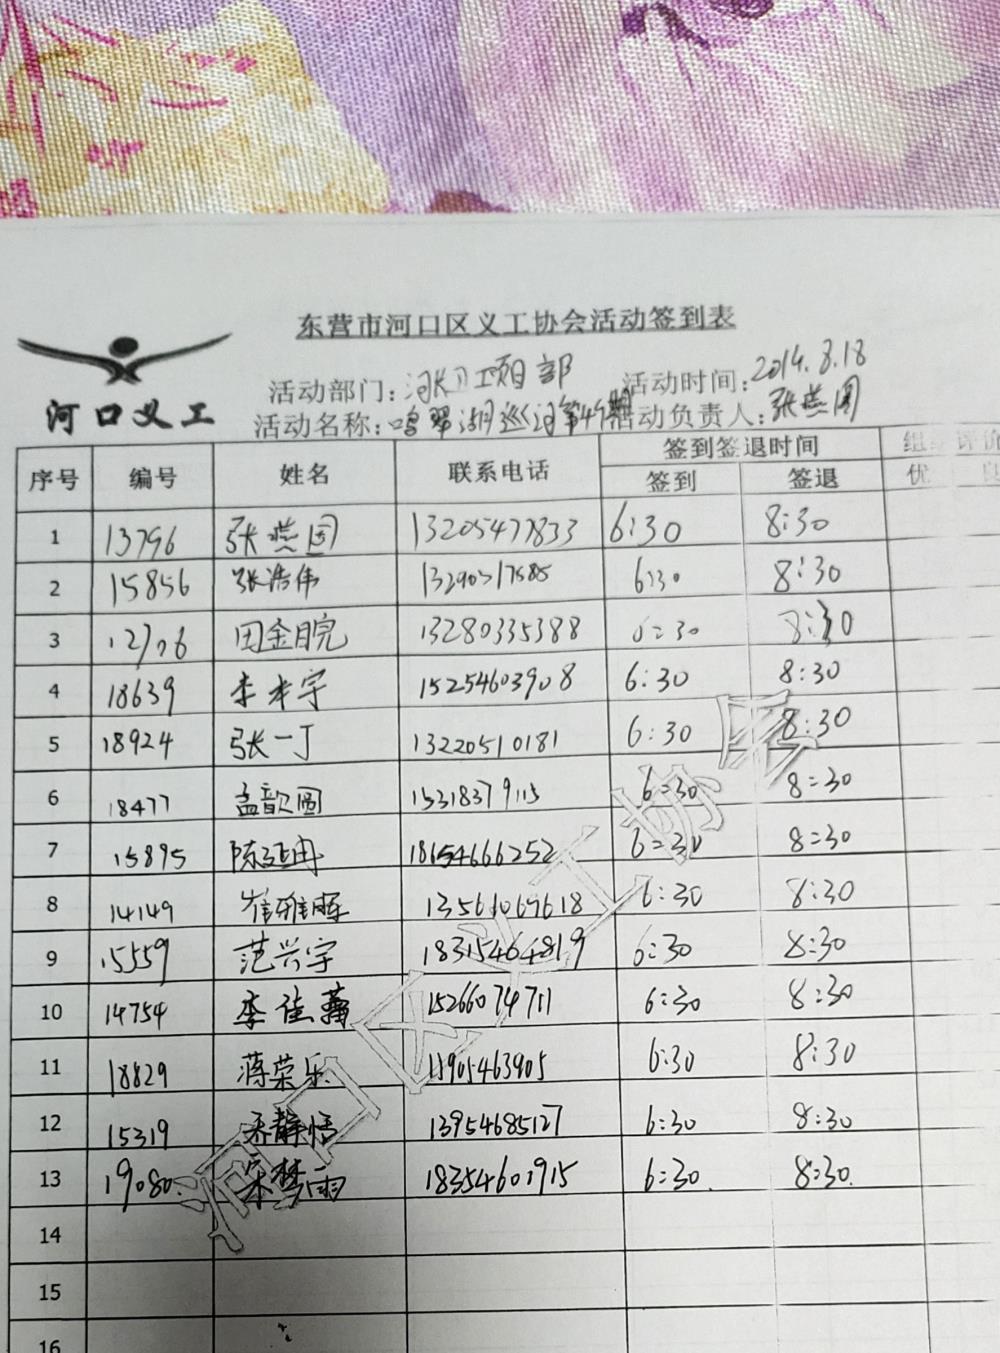 东营市河口区义工协会活动签到表
河口义工
活动部门: 项目部 活动时间: 2014.8.18
活动名称: 鸣翠湖巡河第49期 活动负责人: 张燕园
序号 编号 姓名 联系电话 签到签退时间 组织评价
签到 签退 优 良
1 13796 张燕园 13205477833 6:30 8:30
2 15856 张浩伟 6:30 8:30
3 田金皖 13280335388 6:30 8:30
4 18639 李丰宇 15254603908 6:30 8:30
5 18924 张一丁 13220510181 6:30 8:30
6 18477 孟歆圆 15318379115 6:30 8:30
7 15895 陈延冉 18654666252 6:30 8:30
8 14149 崔雅晖 13561069618 6:30 8:30
9 15559 范兴宇 18315464819 6:30 8:30
10 14754 李佳 15266074711 6:30 8:30
11 18829 蒋荣乐 11905463905 6:30 8:30
12 15319 静恬 13954685127 6:30 8:30
13 19080. 宋梦雨 18354601915 6:30. 8:30.
14
15
16
河口区义工协会